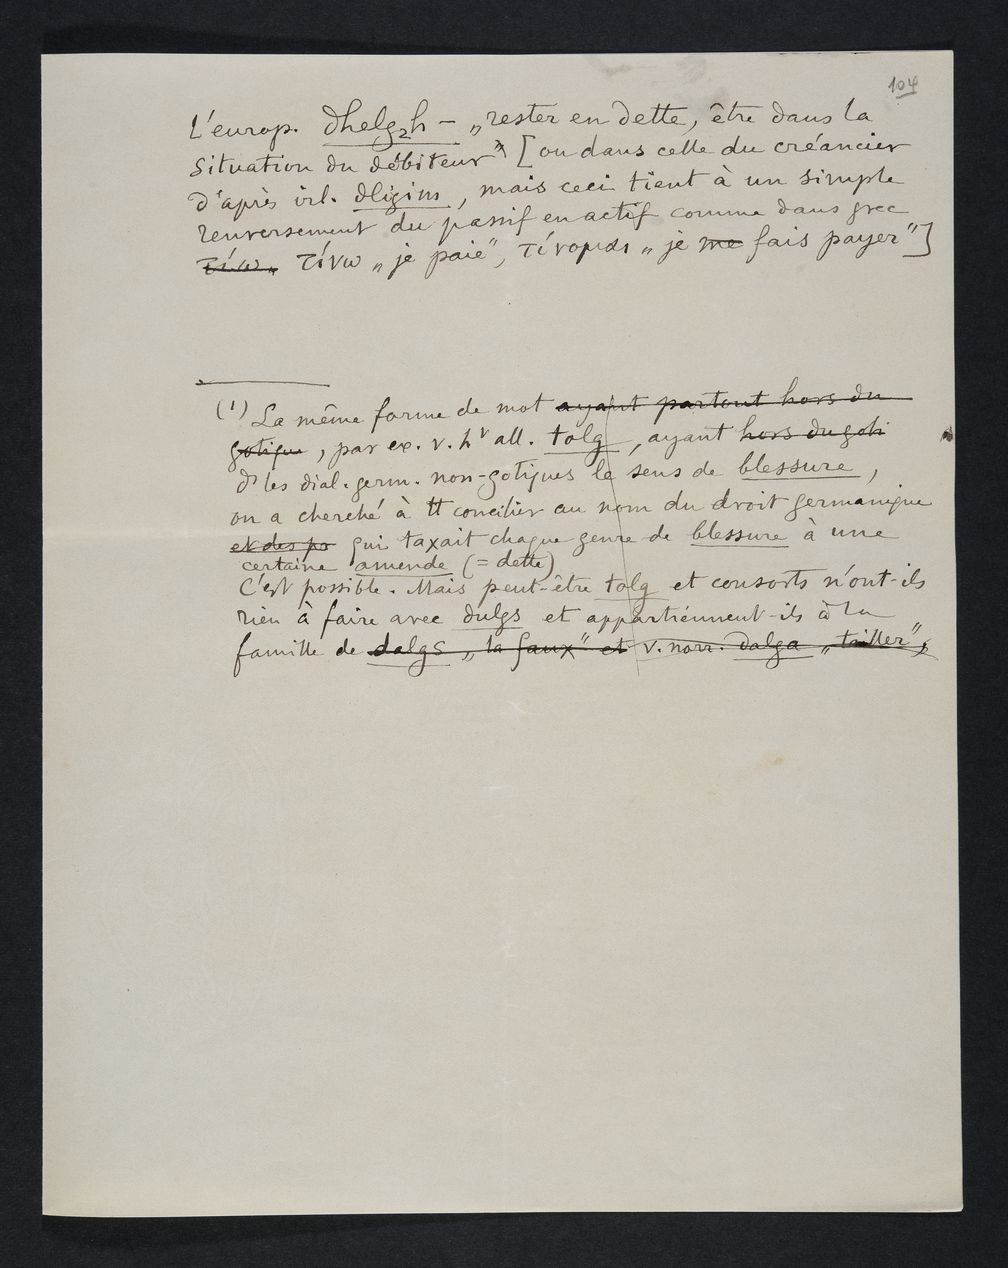 104
L'europ. dhelg₂h – „rester en dette, être dans la
situation du débiteur" [ou dans celle du créancier
d'après irl. dligim, mais ceci tient à un simple
renversement du passif en actif comme dans grec
τίνω „ τίνω „je paie", τίνομαι „je me fais payer"]
(¹) La même forme de mot ayant partout hors du
gotique, par ex. v. hᵗ all. tolg, ayant hors du goti
dˢ les dial. germ. non-gotiques le sens de blessure,
on a cherché à tt concilier au nom du droit germanique
et des po qui taxait chaque genre de blessure à une
certaine amende (= dette)
C'est possible. Mais peut-être tolg et consorts n'ont-ils
rien à faire avec dulgs et appartiennent-ils à la
famille de dalgs „la faux" et v. norr. dalga „tailler",